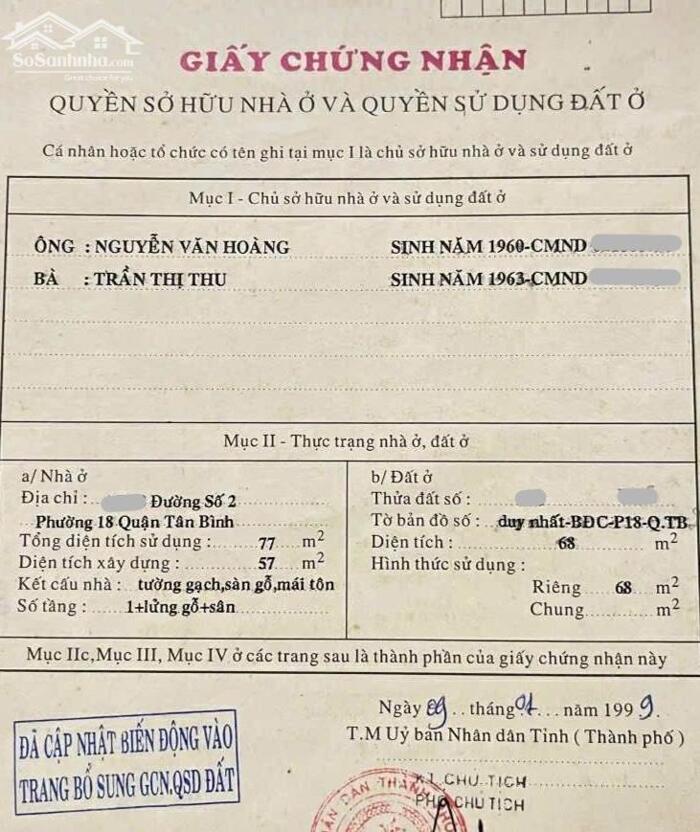 SoSanhnha.com
Great choice for you
GIẤY CHỨNG NHẬN
QUYỀN SỞ HỮU NHÀ Ở VÀ QUYỀN SỬ DỤNG ĐẤT Ở
Cá nhân hoặc tổ chức có tên ghi tại mục I là chủ sở hữu nhà ở và sử dụng đất ở
Mục I - Chủ sở hữu nhà ở và sử dụng đất ở
ÔNG : NGUYỄN VĂN HOÀNG SINH NĂM 1960-CMND
BÀ : TRẦN THỊ THU SINH NĂM 1963-CMND
Mục II - Thực trạng nhà ở, đất ở
a/ Nhà ở
Địa chỉ : Đường Số 2
Phường 18 Quận Tân Bình
Tổng diện tích sử dụng : 77 m2
Diện tích xây dựng : 57 m2
Kết cấu nhà : tường gạch,sàn gỗ,mái tôn
Số tầng : 1+lửng gỗ+sân
b/ Đất ở
Thửa đất số :
Tờ bản đồ số : duy nhất-BĐC-P18-Q.TB
Diện tích : 68 m2
Hình thức sử dụng :
Riêng 68 m2
Chung m2
Mục IIc,Mục III, Mục IV ở các trang sau là thành phần của giấy chứng nhận này
Ngày 09 tháng 01 năm 1999.
T.M Uỷ ban Nhân dân Tỉnh ( Thành phố )
ĐÃ CẬP NHẬT BIẾN ĐỘNG VÀO
TRANG BỔ SUNG GCN,QSD ĐẤT
KT CHỦ TỊCH
PHÓ CHỦ TỊCH
DÂN THÀNH PHỐ